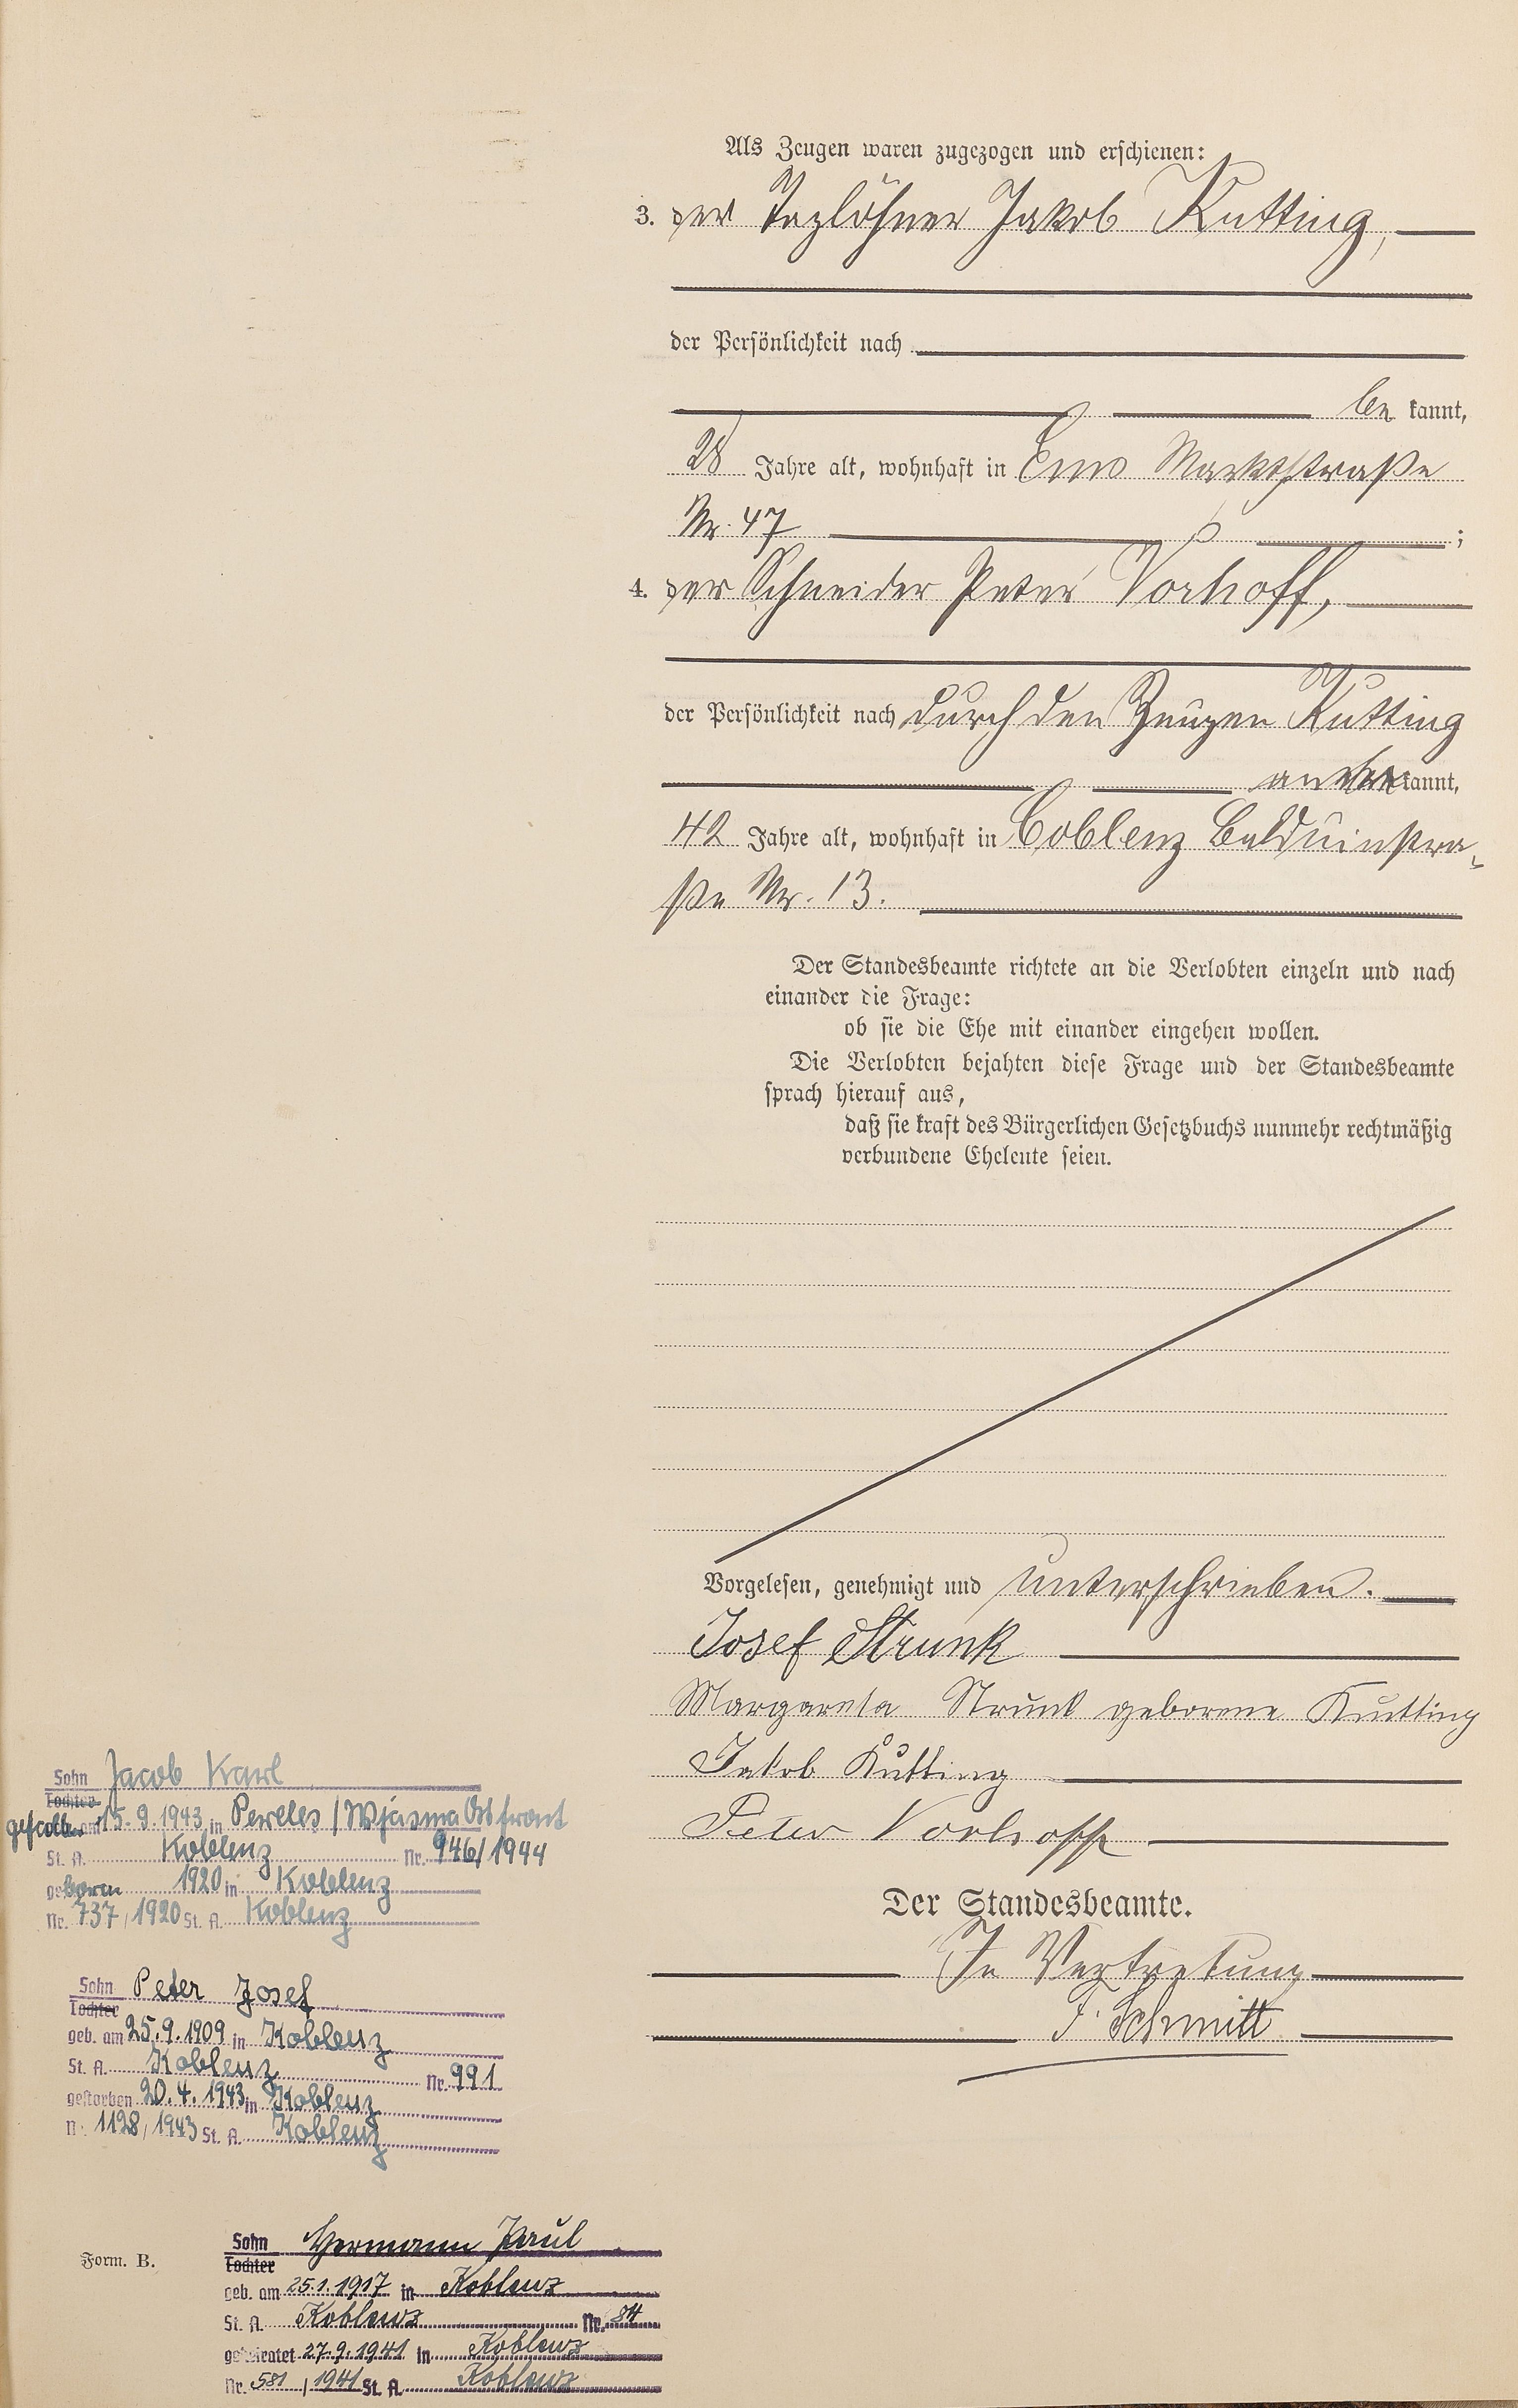 Als Zeugen waren zugezogen und erschienen:
3. der Taglöhner Jakob Kutting,
der Persönlichkeit nach
be kannt,
28 Jahre alt, wohnhaft in Ems Marktstraße
Nr. 47 ;
4. der Schneider Peter Vorhoff,
der Persönlichkeit nach durch den Zeugen Kutting
aner kannt,
42 Jahre alt, wohnhaft in Coblenz Balduinstra-
ße Nr. 13.
Der Standesbeamte richtete an die Verlobten einzeln und nach
einander die Frage:
ob sie die Ehe mit einander eingehen wollen.
Die Verlobten bejahten diese Frage und der Standesbeamte
sprach hierauf aus,
daß sie kraft des Bürgerlichen Gesetzbuchs nunmehr rechtmäßig
verbundene Eheleute seien.
Vorgelesen, genehmigt und unterschrieben.
Josef Strunk
Margareta Strunk geborene Kutting
Jakob Kutting
Peter Vorhoff
Der Standesbeamte.
In Vertretung
F. Schmitt
Sohn Jacob Karl
Tochter
gefallen am 15.9.1943 in /Wjasma Ostfront
St. A. Koblenz Nr. 946/1944
geboren 1920 in Koblenz
Nr. 737/1920 St. A. Koblenz
Sohn Peter Josef
Tochter
geb. am 25.9.1909 in Koblenz
St. A. Koblenz Nr. 991
gestorben 20.4.1943 in Koblenz
Nr. 1128/1943 St. A. Koblenz
Form. B.
Sohn Hermann Paul
Tochter
geb. am 25.1.1917 in Koblenz
St. A. Koblenz Nr. 84
geheiratet 27.9.1941 in Koblenz
Nr. 581/1941 St. A. Koblenz